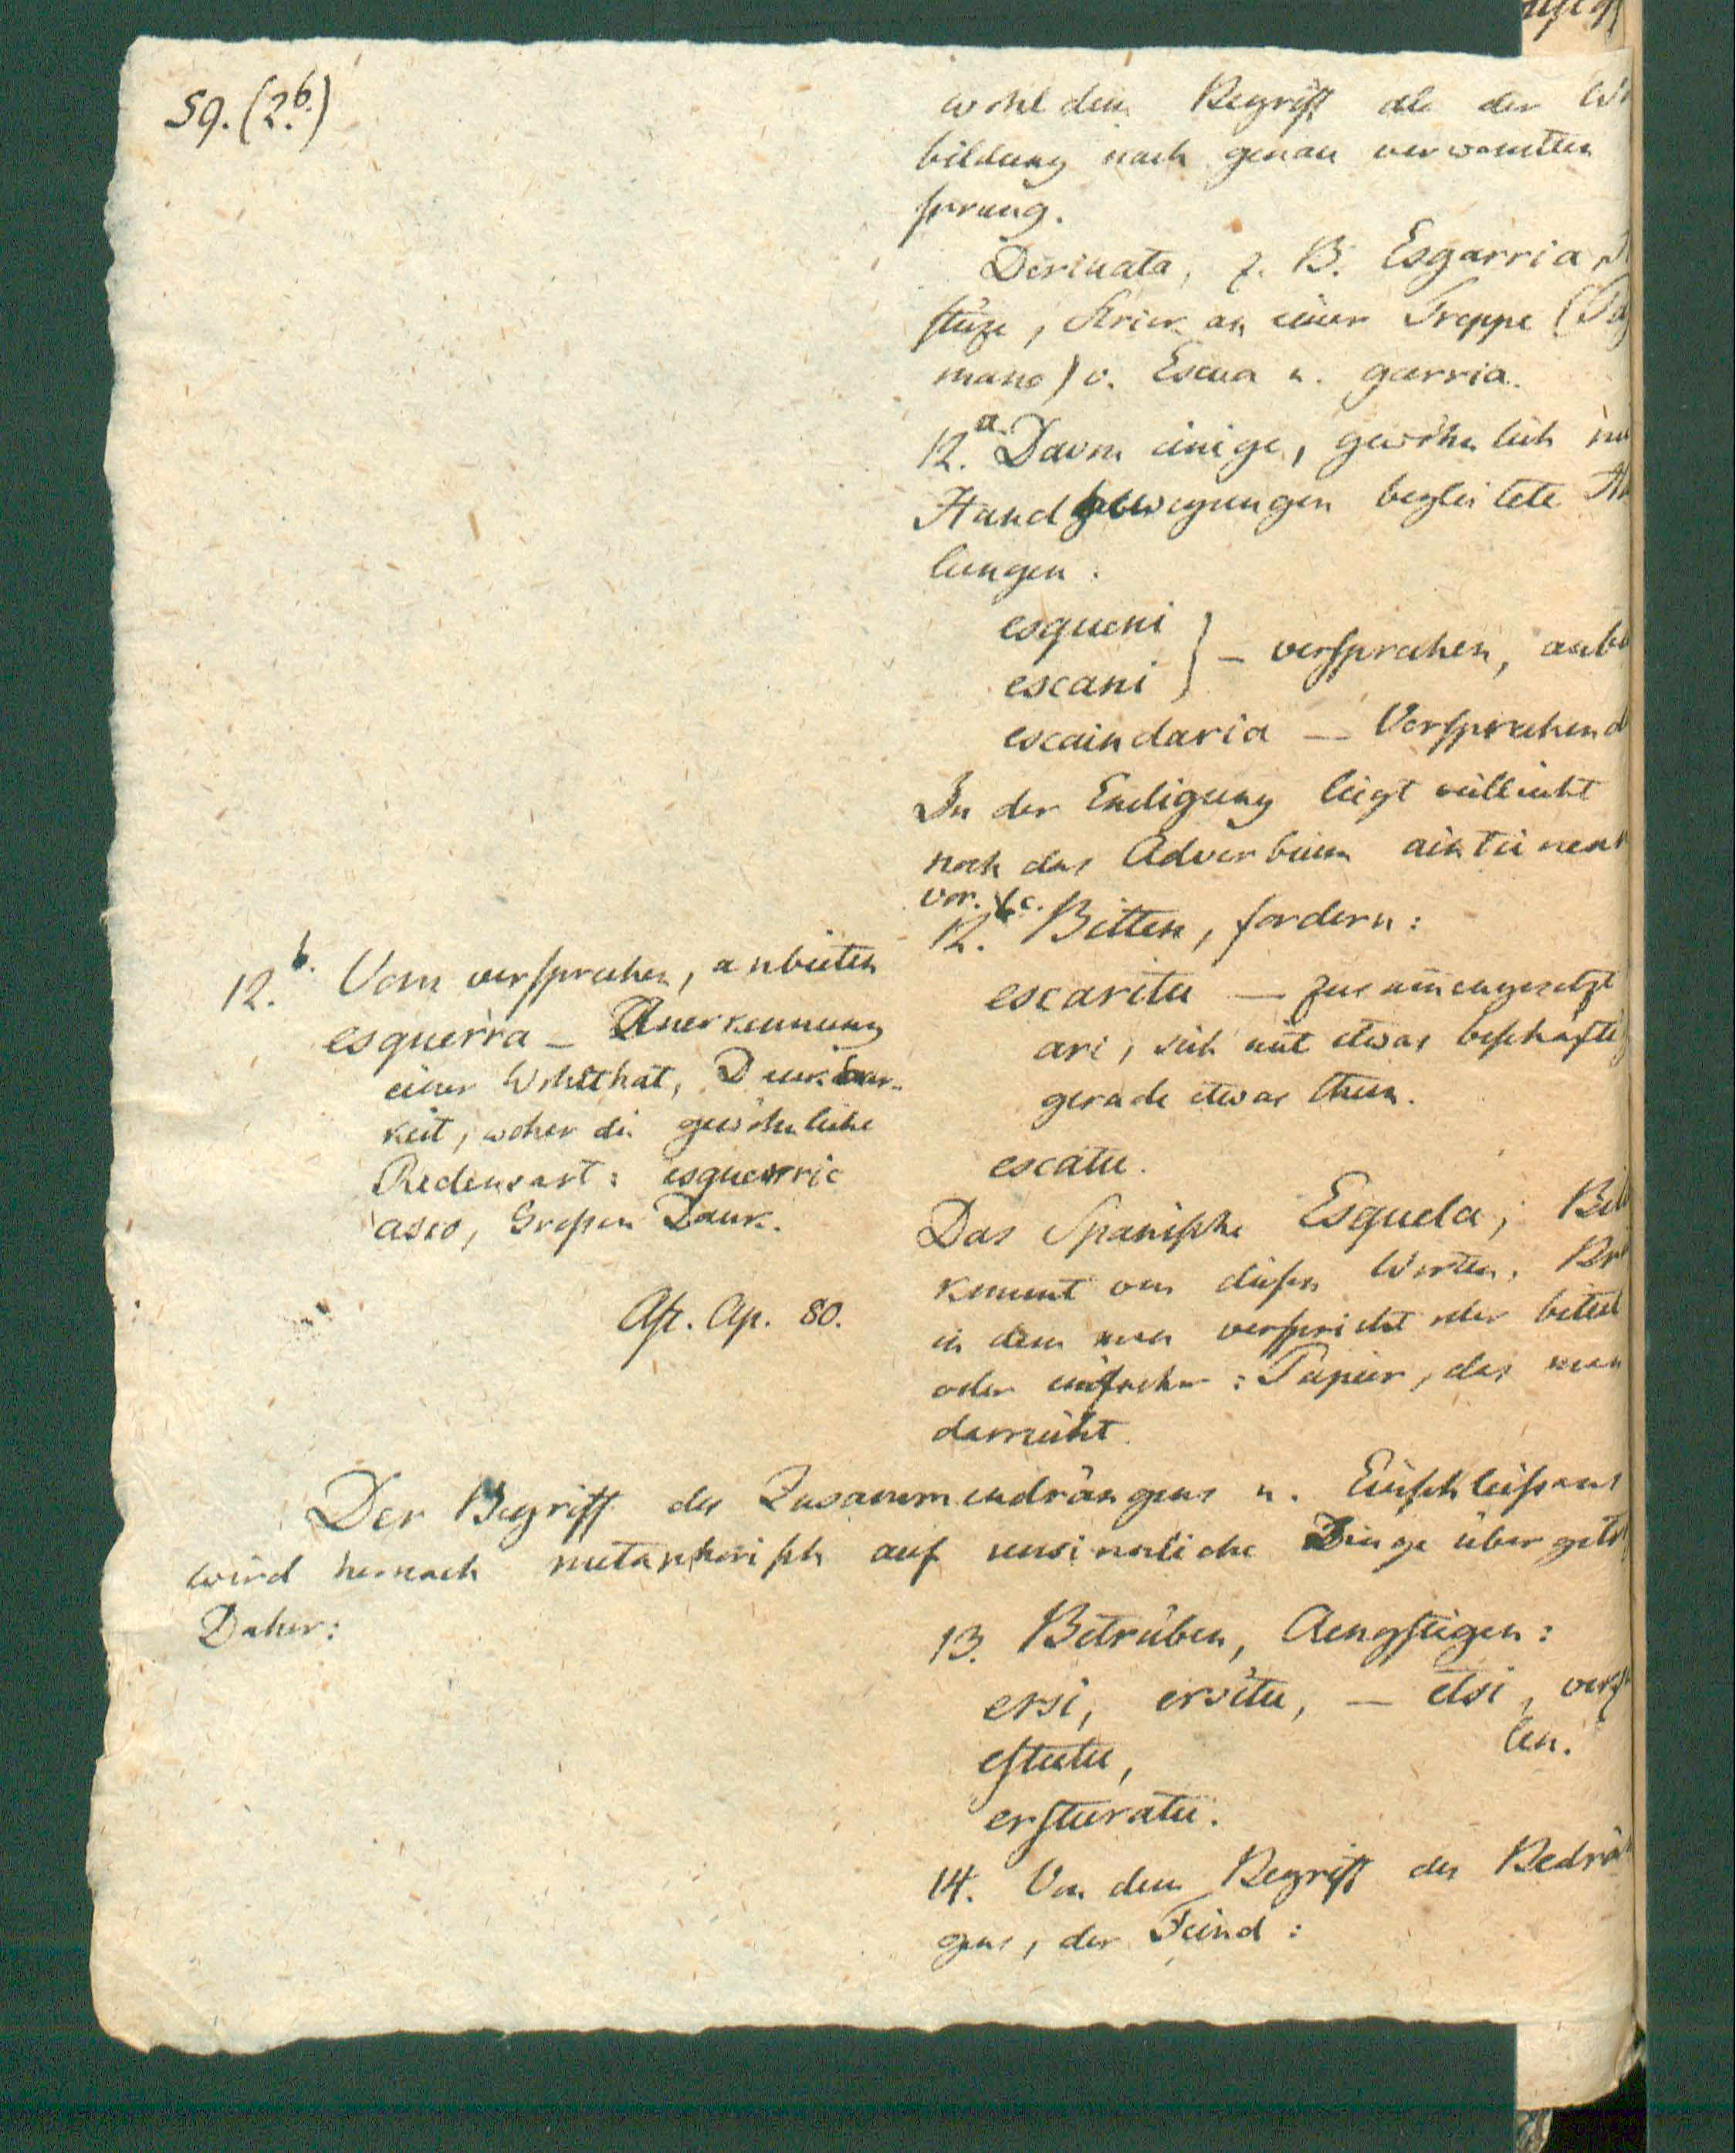 59. (2.b)
wohl dem Begriff als der W
bildung nach genau verwandten
sprung.
Derivata, z. B. Esgarria,
stüze, Strick an einer Treppe (Pa
mano) v. Escua u. garria.
12.a. Davon einige, gewöhnlich
Handbewegungen begleitete
lungen.
esqueni
escani } — versprechen, anb
escaindaria — Versprechend
In der Endigung liegt vielleicht
noch das Adverbium aintcinean
vor.
12.c. Bitten, fordern:
escaritu — zusammengesetzt
ari, sich mit etwas beschäfti
gerade etwas thun.
escatu.
Das Spanische Esquela,
kommt von diesen Worten.
in dem man verspricht oder bittet
oder einfacher: Papier, das man
darreicht.
12.b. Vom versprechen, anbieten
esquerra — Anerkennung
einer Wohlthat, Dankbar-
keit, woher die gewöhnliche
Redensart: esquerric
asco, Grossen Dank.
Ast. Ap. 80.
Der Begriff des Zusammendrängens u. Einschliessens
wird hernach metaphorisch auf unsinnliche Dinge übergetr
Daher:
13. Betrüben, Aengstigen:
ersi, ersitu, — etsi, verzw
len.
estutu,
ersturatu.
14. Von dem Begriff des Bedrän
gens, der Feind: